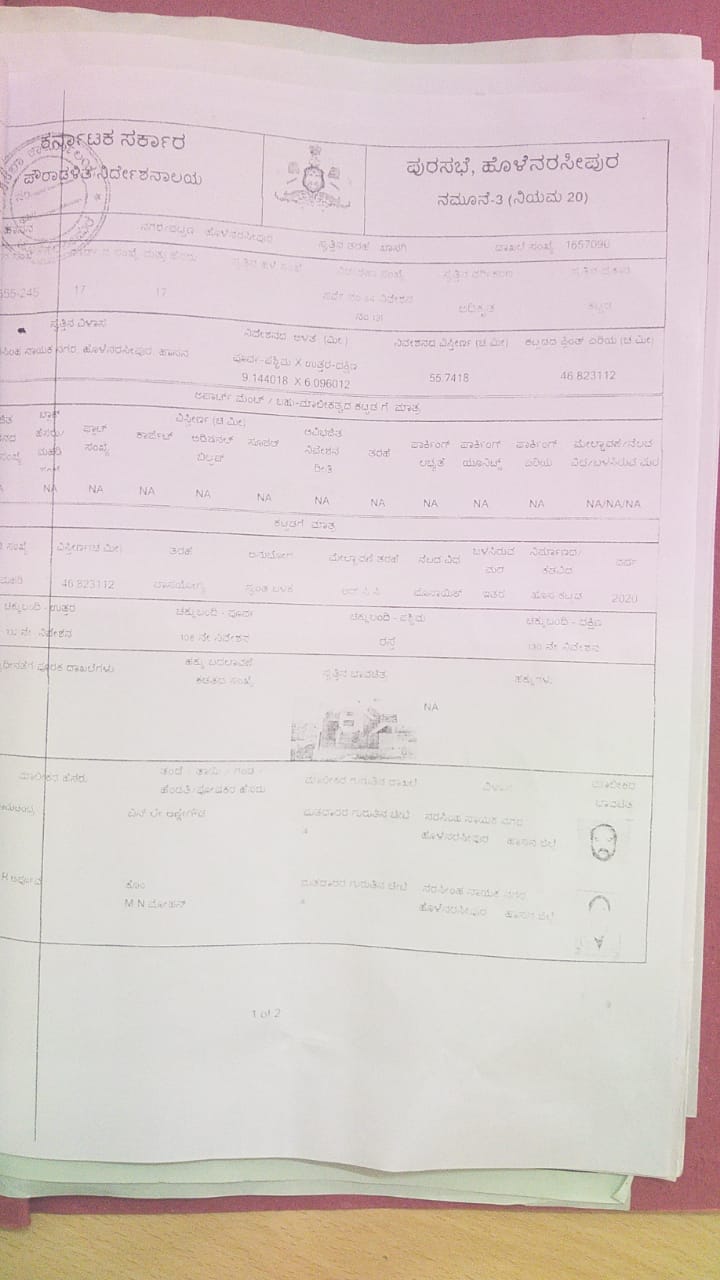 ಕರ್ನಾಟಕ ಸರ್ಕಾರ
ಪೌರಾಡಳಿತ ನಿರ್ದೇಶನಾಲಯ
ಪುರಸಭೆ, ಹೊಳೆನರಸೀಪುರ
ನಮೂನೆ-3 (ನಿಯಮ 20)
ಹಾಸನ ನಗರ/ಪಟ್ಟಣ ಹೊಳೆನರಸೀಪುರ ಸ್ವತ್ತಿನ ತರಹೆ ಖಾಸಗಿ ದಾಖಲೆ ಸಂಖ್ಯೆ 1657090
ಸಂಖ್ಯೆ ಮತ್ತು ಹೆಸರು ಸ್ವತ್ತಿನ ಹಳೆ ಸಂಖ್ಯೆ ಸಂಖ್ಯೆ ಸ್ವತ್ತಿನ ವರ್ಗೀಕರಣ ಸ್ವತ್ತಿನ ಪ್ರಕಾರ
555-245 17 17 ಸರ್ವೆ ನಂ 64 ನಿವೇಶನ ಅಧಿಕೃತ ಕಟ್ಟಡ
ನಂ 131
ಸ್ವತ್ತಿನ ವಿಳಾಸ ನಿವೇಶನದ ಅಳತೆ (ಮೀ.) ನಿವೇಶನದ ವಿಸ್ತೀರ್ಣ (ಚ ಮೀ) ಕಟ್ಟಡದ ಪ್ಲಿಂತ್ ಏರಿಯ (ಚ ಮೀ)
ನಾಯಕ ನಗರ, ಹೊಳೆನರಸೀಪುರ, ಹಾಸನ ಪೂರ್ವ-ಪಶ್ಚಿಮ X ಉತ್ತರ-ದಕ್ಷಿಣ
9.144018 X 6.096012 55.7418 46.823112
ಅಪಾರ್ಟ್ ಮೆಂಟ್ / ಬಹು-ಮಾಲೀಕತ್ವದ ಕಟ್ಟಡಗೆ ಮಾತ್ರ
ಬ್ಲಾಕ್ ಫ್ಲಾಟ್ ವಿಸ್ತೀರ್ಣ (ಚ ಮೀ) ಅವಿಭಜಿತ
ಹೆಸರು/ ಸಂಖ್ಯೆ ಕಾರ್ಪೆಟ್ ಅಡಿಷನಲ್ ಸೂಪರ್ ನಿವೇಶನ ತರಹೆ ಪಾರ್ಕಿಂಗ್ ಪಾರ್ಕಿಂಗ್ ಪಾರ್ಕಿಂಗ್ ಮೇಲ್ಛಾವಣಿ/ನೆಲದ
ಮಹಡಿ ಬಿಲ್ಟಪ್ ರೀತಿ ಲಭ್ಯತೆ ಯೂನಿಟ್ಸ್ ಏರಿಯ ವಿಧ/ಬಳಸಿರುವ ಮರ
NA NA NA NA NA NA NA NA NA NA NA/NA/NA
ಕಟ್ಟಡಗೆ ಮಾತ್ರ
ಸಂಖ್ಯೆ ವಿಸ್ತೀರ್ಣ(ಚ ಮೀ) ತರಹೆ ಅನುಭೋಗ ಮೇಲ್ಛಾವಣಿ ತರಹೆ ನೆಲದ ವಿಧ ಬಳಸಿರುವ ನಿರ್ಮಾಣದ/
ಮರ ವರ್ಷ
ಮಹಡಿ 46.823112 ವಾಸಯೋಗ್ಯ ಸ್ವಂತ ಬಳಕೆ ಆರ್ ಸಿ ಸಿ ಮೊಸಾಯಿಕ್ ಇತರ ಹೊಸ ಕಟ್ಟಡ 2020
ಚಕ್ಕುಬಂದಿ - ಉತ್ತರ ಚಕ್ಕುಬಂದಿ - ಪೂರ್ವ ಚಕ್ಕುಬಂದಿ - ಪಶ್ಚಿಮ ಚಕ್ಕುಬಂದಿ - ದಕ್ಷಿಣ
ನೇ ನಿವೇಶನ 106 ನೇ ನಿವೇಶನ ರಸ್ತೆ 130 ನೇ ನಿವೇಶನ
ಪೂರಕ ದಾಖಲೆಗಳು ಹಕ್ಕು ಬದಲಾವಣೆ ಸ್ವತ್ತಿನ ಭಾವಚಿತ್ರ ಹಕ್ಕುಗಳು
ಕಡತದ ಸಂಖ್ಯೆ
NA
ಮಾಲೀಕರ ಹೆಸರು ತಂದೆ - ತಾಯಿ - ಗಂಡ - ಮಾಲೀಕರ ಗುರುತಿನ ದಾಖಲೆ ವಿಳಾಸ ಮಾಲೀಕರ
ಹೆಂಡತಿ/ಪೋಷಕರ ಹೆಸರು ಭಾವಚಿತ್ರ
ಮತದಾರರ ಗುರುತಿನ ಚೀಟಿ ನರಸಿಂಹ ನಾಯಕ ನಗರ
ಹೊಳೆನರಸೀಪುರ ಹಾಸನ ಜಿಲ್ಲೆ
ಕೋಂ ಮತದಾರರ ಗುರುತಿನ ಚೀಟಿ ನರಸಿಂಹ ನಾಯಕ ನಗರ
M N ಮೋಹನ್ ಹೊಳೆನರಸೀಪುರ ಹಾಸನ ಜಿಲ್ಲೆ
1 of 2